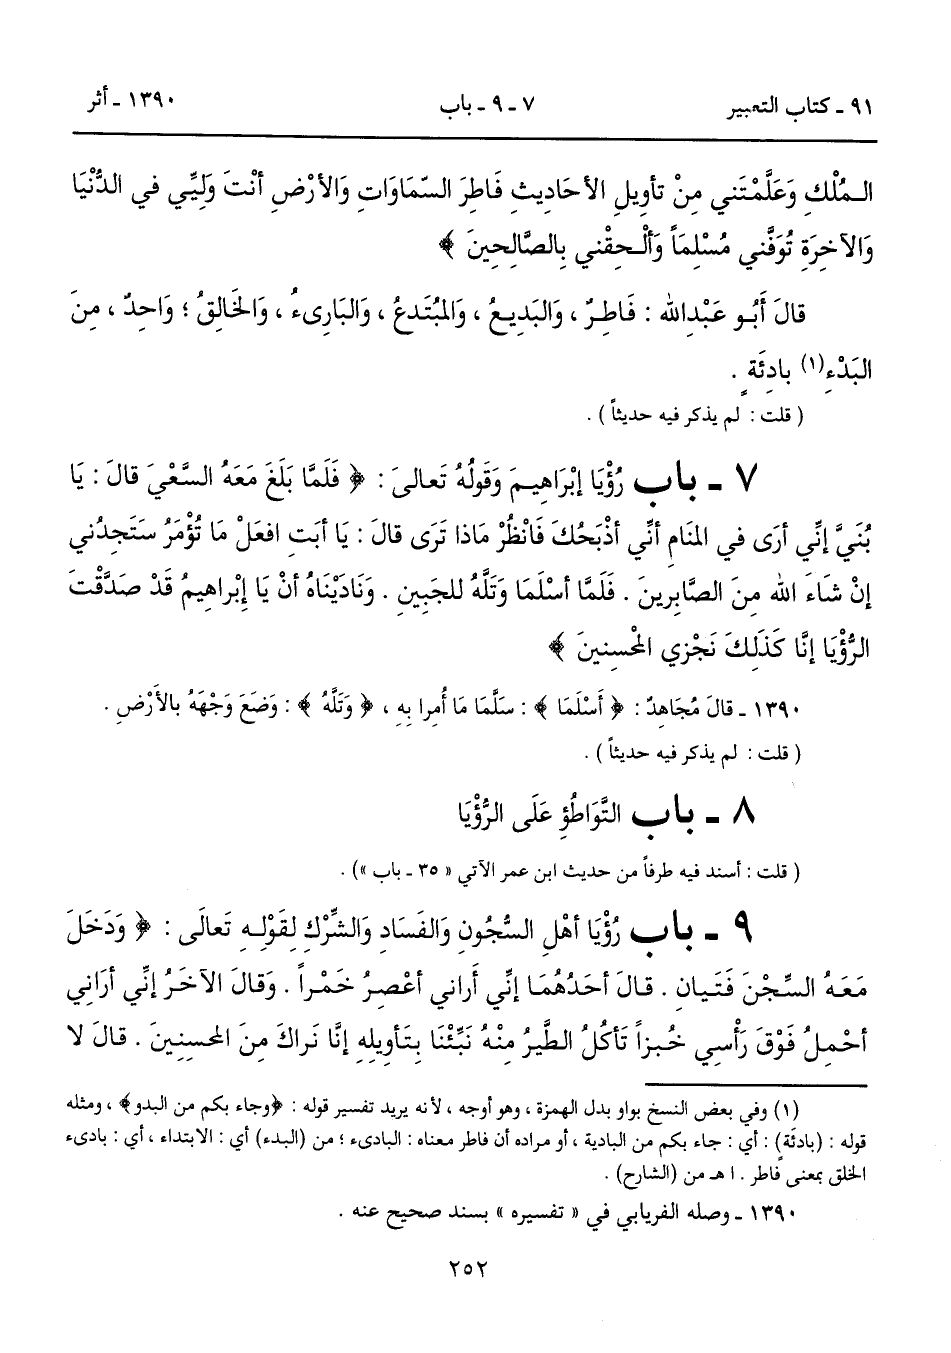 ٩١ ـ كتاب التعبير ٧ ـ ٩ ـ باب ١٣٩٠ ـ أثر
الـمُلْكِ وَعَلَّمْتَني مِنْ تأويلِ الأحَاديثِ فَاطِرَ السّمَاوَاتِ وَالأرْضِ أنْتَ وَليِّي في الدُّنْيَا
وَالآخِرَةِ تُوَفَّني مُسْلِمَاً وَألْحِقْني بِالصَّالِحِينَ ﴾
قالَ أَبُو عَبْدِالله : فَاطِرٌ ، وَالبَديعُ ، وَالمُبْتَدعُ ، وَالبَارىءُ ، وَالخَالِقُ ؛ وَاحِدٌ ، مِنَ
البَدْءِ(١) بادِئَةٍ .
( قلت : لم يذكر فيه حديثاً ) .
٧ ـ باب رُؤْيَا إبْرَاهِيمَ وَقَولُهُ تَعالىَ : ﴿ فَلَمَّا بَلَغَ مَعَهُ السَّعْيَ قالَ : يَا
بُنَيَّ إنِّي أرَى في المَنَامِ أنِّي أذْبَحُكَ فَانْظُرْ مَاذا تَرَى قالَ : يا أبَتِ افعَلْ ما تُؤْمَرُ سَتَجِدُني
إنْ شَاءَ الله مِنَ الصَّابِرينَ . فَلَمَّا أسْلَمَا وَتَلَّهُ للجَبِينِ . وَنَادَيْنَاهُ أنْ يَا إبْراهيمُ قَدْ صَدَّقْتَ
الرُّؤْيَا إنَّا كَذَلِكَ نَجْزي المْحْسِنينَ ﴾
١٣٩٠ ـ قالَ مُجَاهِدٌ : ﴿ أَسْلَمَا ﴾ : سَلَّمَا مَا أُمِرا بِهِ ، ﴿ وَتَلَّهُ ﴾ : وَضَعَ وَجْهَهُ بالأَرْضِ .
( قلت : لم يذكر فيه حديثاً ) .
٨ ـ باب التَّوَاطُؤِ عَلَى الرُّؤْيَا
( قلت : أسند فيه طرفاً من حديث ابن عمر الآتي « ٣٥ ـ باب ») .
٩ ـ باب رُؤْيَا أهْلِ السُّجُونِ وَالفَسَادِ وَالشِّرْكِ لِقَوْلِهِ تَعَالَى : ﴿ وَدَخَلَ
مَعَهُ السِّجْنَ فَتَيانِ . قالَ أحَدُهُمَا إنِّي أَراني أعْصِرُ خَمْراً . وَقالَ الآخَرُ إنِّي أرَاني
أحْمِلُ فَوْقَ رَأْسِي خُبزاً تَأكُلُ الطَّيرُ مِنْهُ نَبِّئْنَا بِتَأويلِهِ إنَّا نَراكَ مِنَ المحسِنينَ . قالَ لا
(١) وفي بعض النسخ بواو بدل الهمزة ، وهو أوجه ، لأنه يريد تفسير قوله : ﴿وجاء بكم من البدو﴾ ، ومثله
قوله : (بادئَةٍ) : أي : جاء بكم من البادية ، أو مراده أن فاطر معناه : البادىء ؛ من (البدء) أي : الابتداء ، أي : بادىء
الخلق بمعنى فاطر . ا هـ من (الشارح) .
١٣٩٠ ـ وصله الفريابي في « تفسيره » بسند صحيح عنه .
٢٥٢